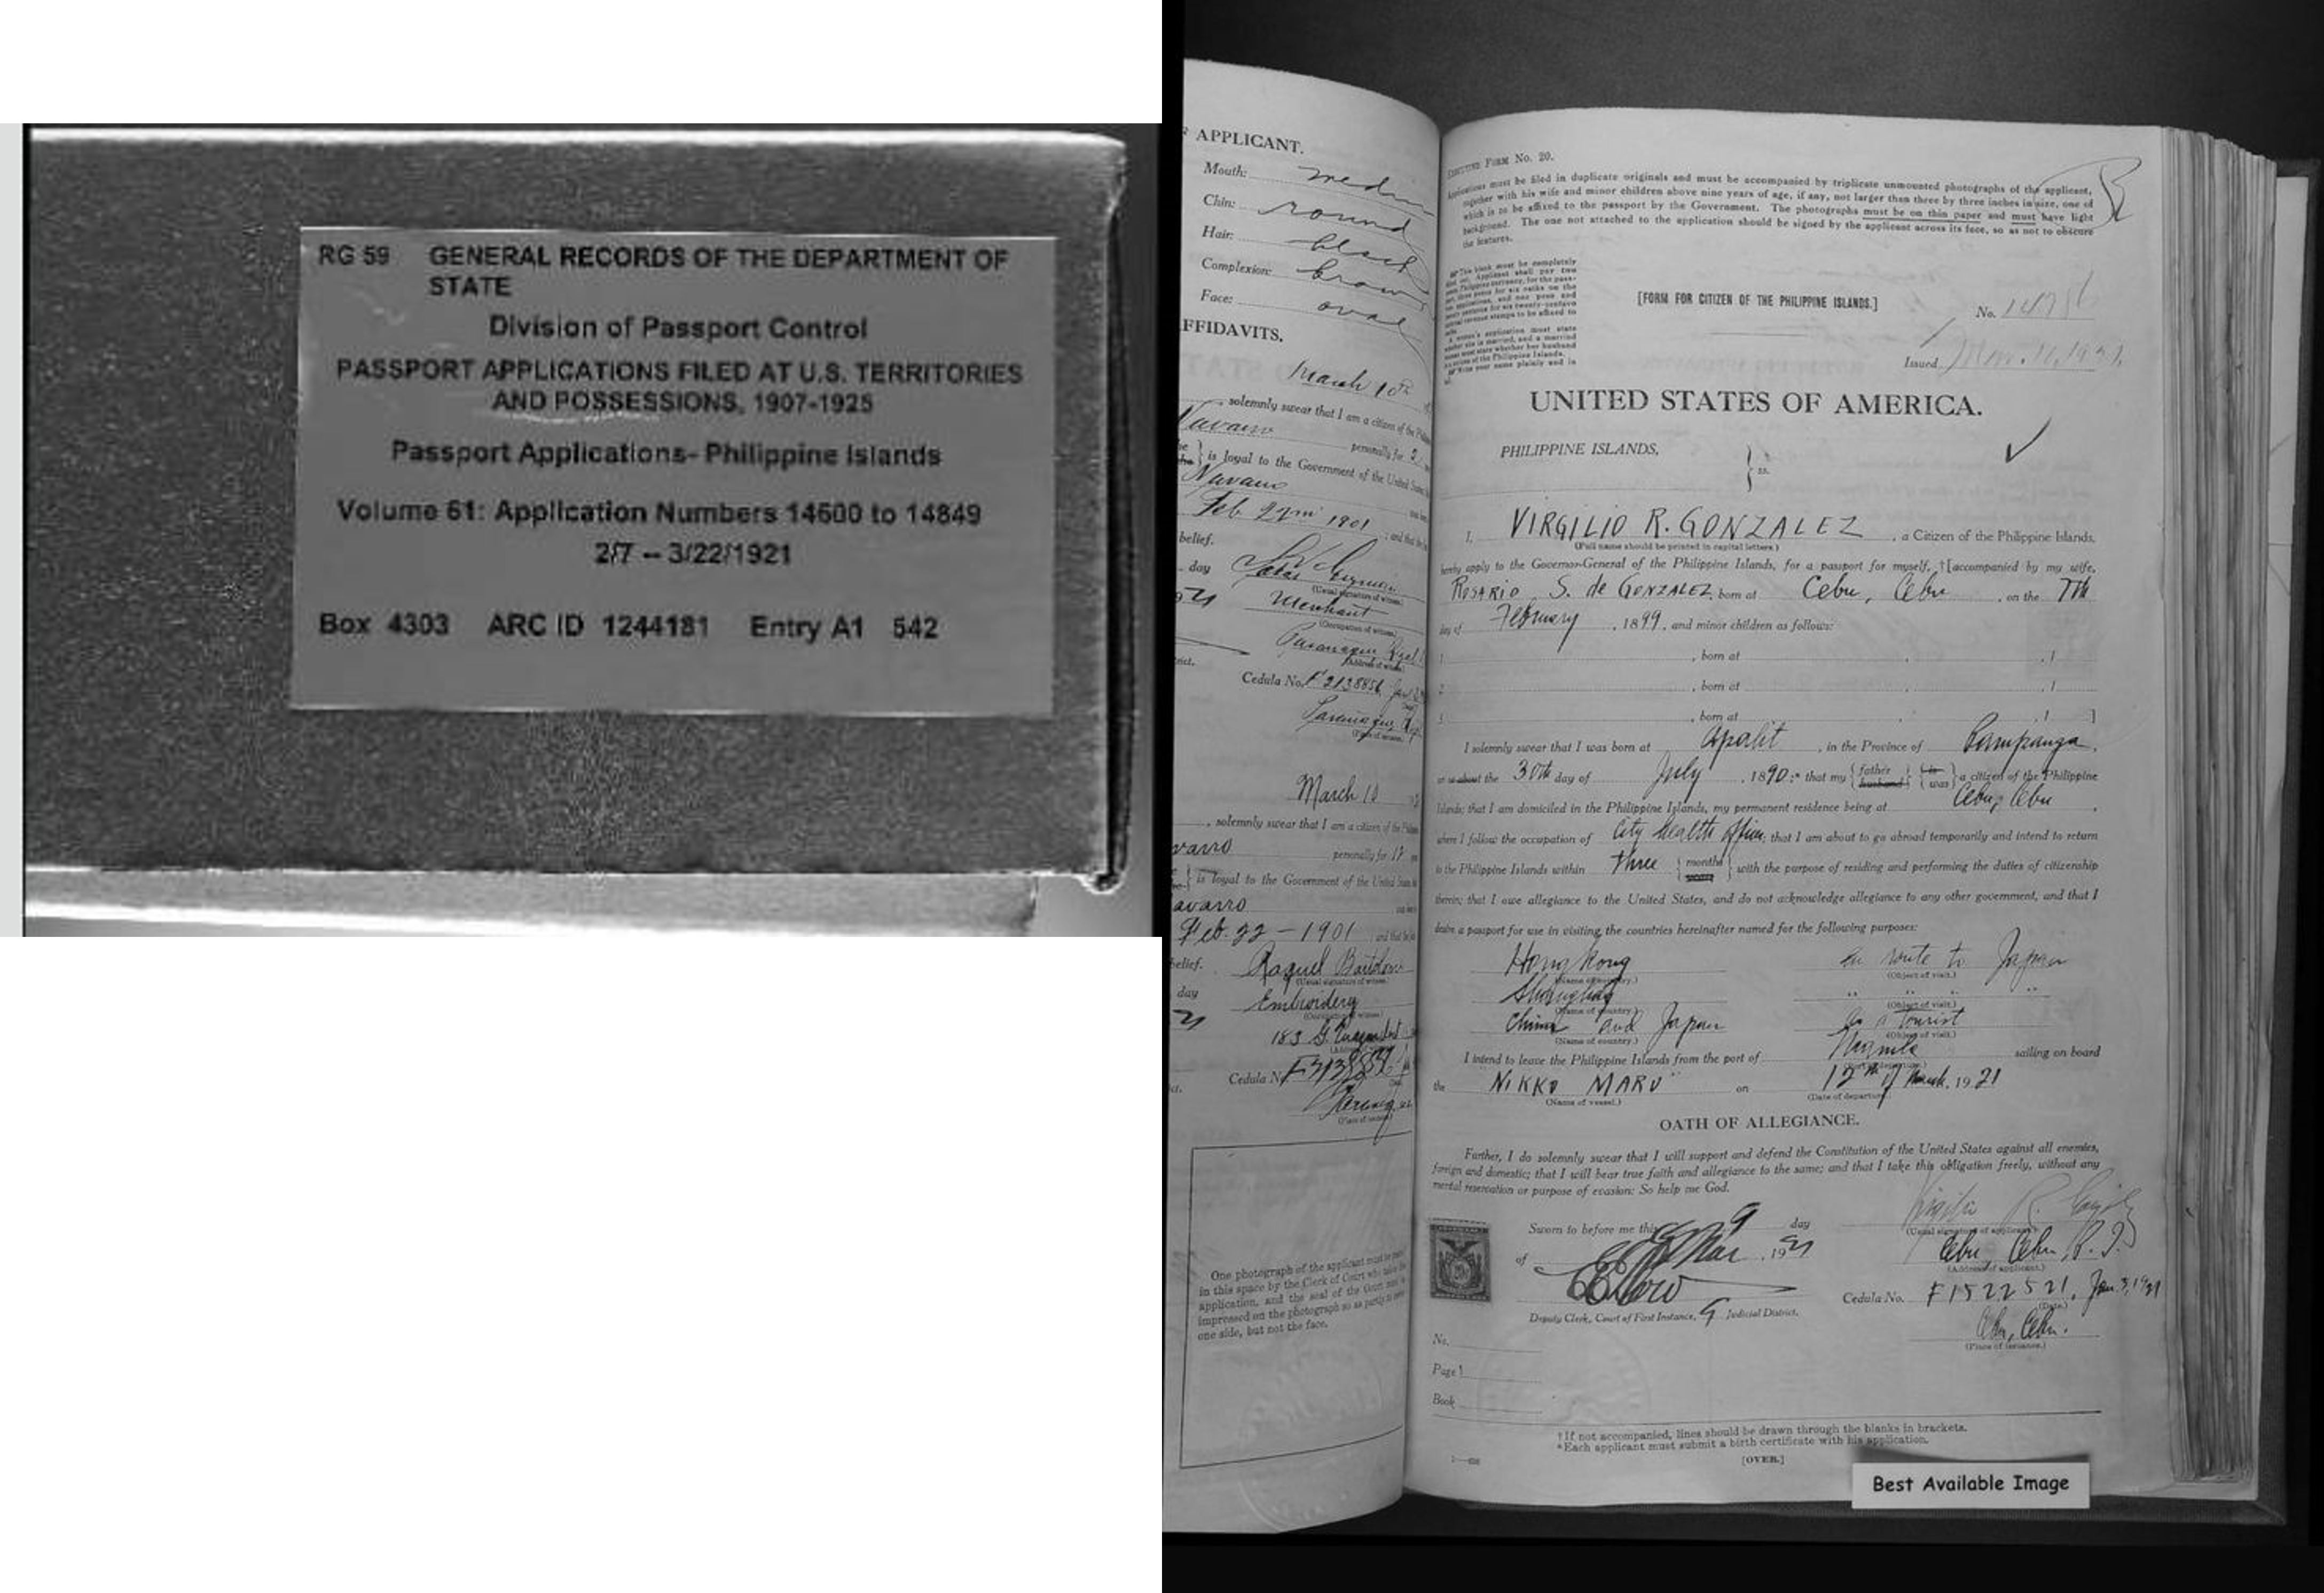 RG 59 GENERAL RECORDS OF THE DEPARTMENT OF
STATE
Division of Passport Control
PASSPORT APPLICATIONS FILED AT U.S. TERRITORIES
AND POSSESSIONS, 1907-1925
Passport Applications- Philippine Islands
Volume 61: Application Numbers 14600 to 14849
2/7 -- 3/22/1921
Box 4303 ARC ID 1244181 Entry A1 542
APPLICANT.
Mouth:
Chin: round
Hair: black
Complexion: brown
Face: oval
FFIDAVITS.
March 10th
solemnly swear that I am a citizen of the
Navarro personally for 2
is loyal to the Government of the United States
Navarro
Feb 22nd 1901 ; and that
belief.
day
(Usual signature of witness.)
Merchant
(Occupation of witness.)
(Address of witness.)
Cedula No. F2138856
(Place of issuance.)
March 10
, solemnly swear that I am a citizen of the
varro personally for 17
is loyal to the Government of the United States
avarro
Feb. 22 - 1901 and that
belief. Raquel
(Usual signature of witness.)
day Embroidery
(Occupation of witness.)
183 G.
Cedula N
(Place of issuance.)
One photograph of the applicant must be
in this space by the Clerk of Court who takes the
application, and the seal of the Court
impressed on the photograph so as partly to
one side, but not the face.
EXECUTIVE FORM No. 20.
Applications must be filed in duplicate originals and must be accompanied by triplicate unmounted photographs of the applicant,
together with his wife and minor children above nine years of age, if any, not larger than three by three inches in size, one of
which is to be affixed to the passport by the Government. The photographs must be on thin paper and must have light
background. The one not attached to the application should be signed by the applicant across its face, so as not to obscure
the features.
This blank must be completely
[FORM FOR CITIZEN OF THE PHILIPPINE ISLANDS.]
No.
Issued Mar. 11, 1921.
UNITED STATES OF AMERICA.
PHILIPPINE ISLANDS, } ss.
I, VIRGILIO R. GONZALEZ, a Citizen of the Philippine Islands,
(Full name should be printed in capital letters.)
hereby apply to the Governor-General of the Philippine Islands, for a passport for myself, †[accompanied by my wife,
ROSARIO S. de GONZALEZ, born at Cebu, Cebu, on the 7th
day of February, 1899, and minor children as follows:
1 , born at , , 1
2 , born at , , 1
3 , born at , , 1 ]
I solemnly swear that I was born at Apalit, in the Province of Pampanga,
on or about the 30th day of July, 1890;* that my {father husband} {is was} a citizen of the Philippine
Islands; that I am domiciled in the Philippine Islands, my permanent residence being at Cebu, Cebu,
where I follow the occupation of City health officer; that I am about to go abroad temporarily and intend to return
to the Philippine Islands within three {months years} with the purpose of residing and performing the duties of citizenship
therein; that I owe allegiance to the United States, and do not acknowledge allegiance to any other government, and that I
desire a passport for use in visiting the countries hereinafter named for the following purposes:
Hongkong en route to Japan
(Name of country.) (Object of visit.)
Shanghai " " " "
(Name of country.) (Object of visit.)
China and Japan As a Tourist
(Name of country.) (Object of visit.)
I intend to leave the Philippine Islands from the port of Manila sailing on board
the NIKKO MARU on 12th of March, 1921
(Name of vessel.) (Date of departure.)
OATH OF ALLEGIANCE.
Further, I do solemnly swear that I will support and defend the Constitution of the United States against all enemies,
foreign and domestic; that I will bear true faith and allegiance to the same; and that I take this obligation freely, without any
mental reservation or purpose of evasion: So help me God.
Virgilio R. Gonzalez
(Usual signature of applicant.)
Sworn to before me this 9 day
of Mar, 1921
Cebu, Cebu, P. I.
(Address of applicant.)
Deputy Clerk, Court of First Instance, 9 Judicial District.
Cedula No. F1522521, Jan. 3, 1921
(Date.)
Cebu, Cebu.
(Place of issuance.)
No.
Page
Book
†If not accompanied, lines should be drawn through the blanks in brackets.
*Each applicant must submit a birth certificate with his application.
[OVER.]
Best Available Image